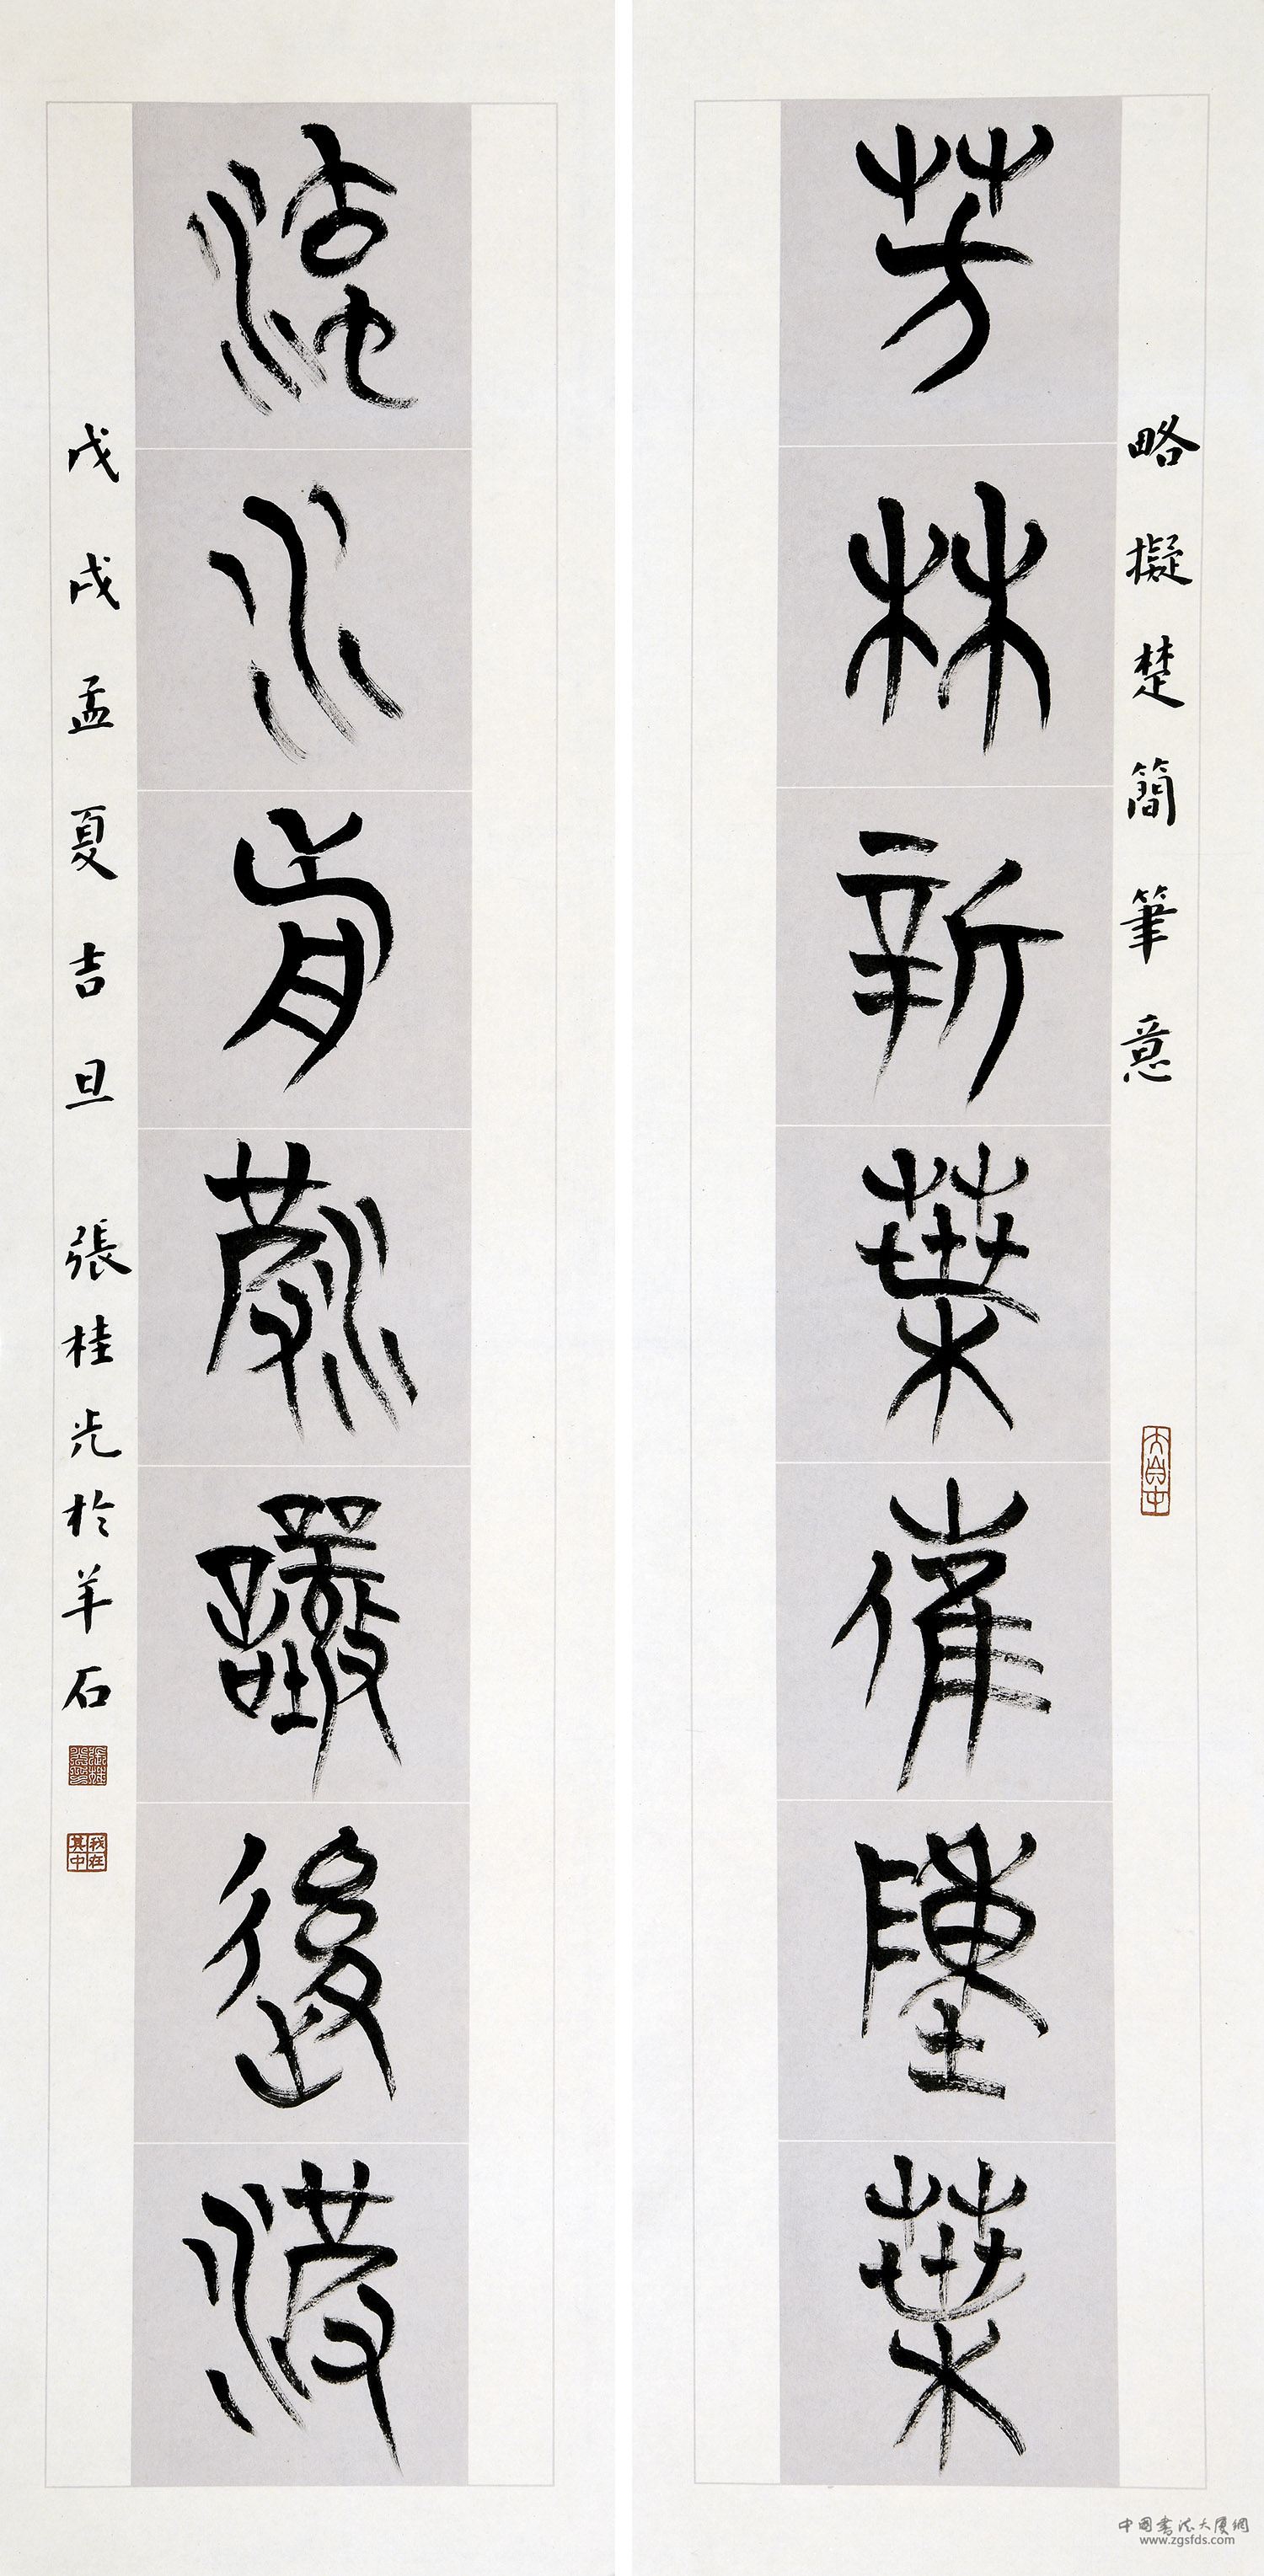 略擬楚簡筆意
芳林新葉催陳葉
流水前波讓後波
戊戌孟夏吉旦 張桂光於羊石
我在其中
中国書法大厦網
www.zgsfds.com